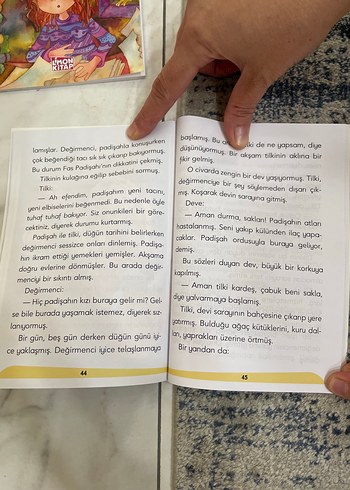 LİMON
KİTAP
lamışlar. Değirmenci, padişahla konuşurken
çok beğendiği tacı sık sık çıkarıp bakıyormuş.
Bu durum Fas Padişahı'nın dikkatini çekmiş.
Tilkinin kulağına eğilip sebebini sormuş.
Tilki:
— Ah efendim, padişahım yeni tacını,
yeni elbiselerini beğenmedi. Bu nedenle öyle
tuhaf tuhaf bakıyor. Siz onunkileri bir göre-
cektiniz, diyerek durumu kurtarmış.
Padişah ile tilki, düğün tarihini belirlerken
değirmenci sessizce onları dinlemiş. Padişa-
hın ikram ettiği yemekleri yemişler. Akşama
doğru evlerine dönmüşler. Bu arada değir-
menciyi bir sıkıntı almış.
Değirmenci:
— Hiç padişahın kızı buraya gelir mi? Gel-
se bile burada yaşamak istemez, diyerek sız-
lanıyormuş.
Bir gün, beş gün derken düğün günü iyi-
ce yaklaşmış. Değirmenci iyice telaşlanmaya
44
başlamış. Bu de ne yapsam, diye
düşünüyormuş. Bir akşam tilkinin aklına bir
fikir gelmiş.
O civarda zengin bir dev yaşıyormuş. Tilki,
değirmenciye bir şey söylemeden dışarı çık-
mış. Koşarak devin sarayına gitmiş.
Deve:
— Aman durma, saklan! Padişahın atları
hastalanmış. Seni yakıp külünden ilaç yapa-
caklar. Padişah ordusuyla buraya geliyor,
demiş.
Bu sözleri duyan dev, büyük bir korkuya
kapılmış.
— Aman tilki kardeş, çabuk beni sakla,
diye yalvarmaya başlamış.
Tilki, devi sarayının bahçesine çıkarıp yere
yatırmış. Bulduğu ağaç kütüklerini, kuru dal-
ları, yaprakları üzerine örtmüş.
Bir yandan da:
45